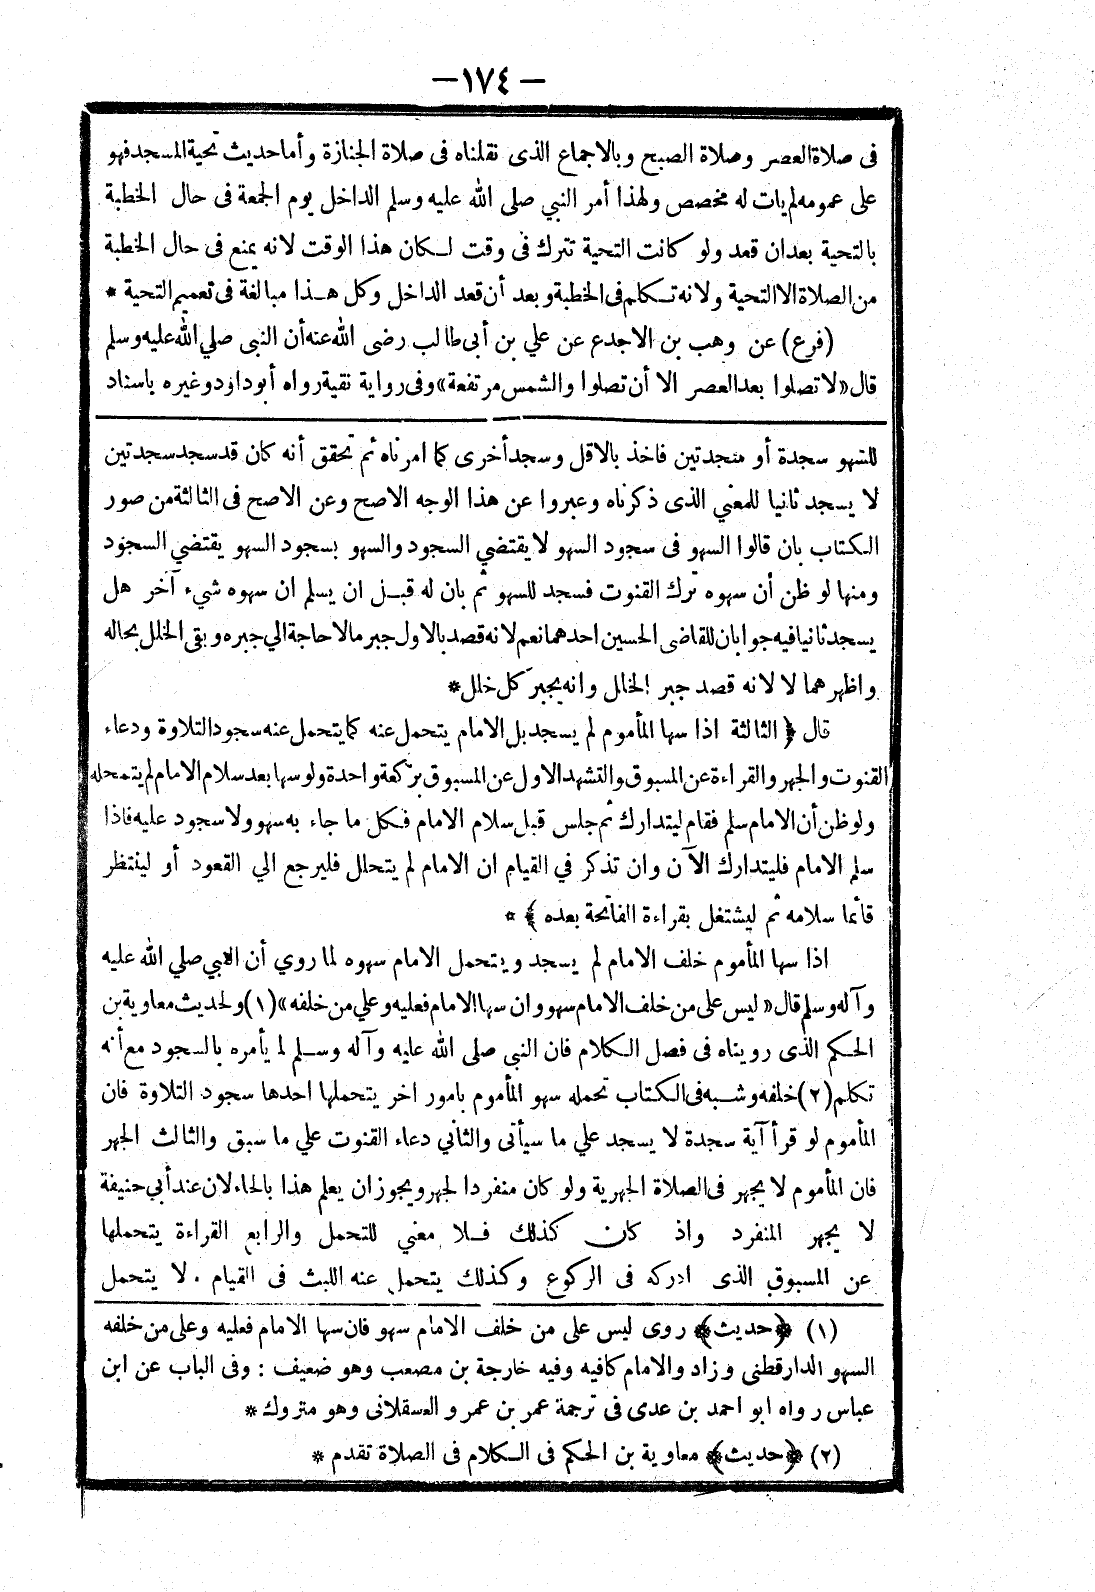 — ١٧٤ —
فى صلاة العصر وصلاة الصبح وبالاجماع الذى نقلناه فى صلاة الجنازة وأما حديث تحية المسجد فهو
على عمومه لم يات له مخصص ولهذا أمر النبي صلى الله عليه وسلم الداخل يوم الجمعة فى حال الخطبة
بالتحية بعد ان قعد ولو كانت التحية تترك فى وقت لكان هذا الوقت لانه يمنع فى حال الخطبة
من الصلاة الا التحية ولانه تكلم فى الخطبة وبعد أن قعد الداخل وكل هذا مبالغة فى تعميم التحية *
(فرع) عن وهب بن الاجدع عن علي بن أبى طالب رضى الله عنه أن النبى صلي الله عليه وسلم
قال «لا تصلوا بعد العصر الا أن تصلوا والشمس مرتفعة» وفى رواية نقية رواه أبو داود وغيره باسناد
للسهو سجدة أو سجدتين فاخذ بالاقل وسجد أخرى كما امرناه ثم تحقق أنه كان قد سجد سجدتين
لا يسجد ثانيا للمعني الذى ذكرناه وعبروا عن هذا الوجه الاصح وعن الاصح فى الثالثة من صور
الكتاب بان قالوا السهو فى سجود السهو لا يقتضي السجود والسهو بسجود السهو يقتضي السجود
ومنها لو ظن أن سهوه ترك القنوت فسجد للسهو ثم بان له قبل ان يسلم ان سهوه شيء آخر هل
يسجد ثانيا فيه جوابان للقاضى الحسين احدهما نعم لانه قصد بالاول جبر مالا حاجة الي جبره وبقى الخلل بحاله
واظهرهما لا لانه قصد جبر الخلل وانه يجبر كل خلل *
قال ﴿ الثالثة اذا سها المأموم لم يسجد بل الامام يتحمل عنه كما يتحمل عنه سجود التلاوة ودعاء
القنوت والجهر والقراءة عن المسبوق والتشهد الاول عن المسبوق بركعة واحدة ولو سها بعد سلام الامام لم يتحمله
ولو ظن أن الامام سلم فقام ليتدارك ثم جلس قبل سلام الامام فكل ما جاء به سهو ولا سجود عليه فاذا
سلم الامام فليتدارك الآن وان تذكر في القيام ان الامام لم يتحلل فليرجع الي القعود أو لينتظر
قائما سلامه ثم ليشتغل بقراءة الفاتحة بعده ﴾ *
اذا سها المأموم خلف الامام لم يسجد ويتحمل الامام سهوه لما روي أن النبي صلي الله عليه
وآله وسلم قال « ليس على من خلف الامام سهو وان سها الامام فعليه وعلي من خلفه » (١) ولحديث معاوية بن
الحكم الذى رويناه فى فصل الكلام فان النبي صلى الله عليه وآله وسلم لم يأمره بالسجود مع أنه
تكلم (٢) خلفه وشبه فى الكتاب تحمله سهو المأموم بامور اخر يتحملها احدها سجود التلاوة فان
المأموم لو قرأ آية سجدة لا يسجد علي ما سيأتى والثاني دعاء القنوت علي ما سبق والثالث الجهر
فان المأموم لا يجهر فى الصلاة الجهرية ولو كان منفردا لجهر ويجوز ان يعلم هذا بالحاء لان عند أبي حنيفة
لا يجهر المنفرد واذ كان كذلك فلا معني للتحمل والرابع القراءة يتحملها
عن المسبوق الذى ادركه فى الركوع وكذلك يتحمل عنه اللبث فى القيام . لا يتحمل
(١) ﴿حديث﴾ روى ليس على من خلف الامام سهو فان سها الامام فعليه وعلى من خلفه
السهو الدارقطنى وزاد والامام كافيه وفيه خارجة بن مصعب وهو ضعيف : وفى الباب عن ابن
عباس رواه ابو احمد بن عدى فى ترجمة عمر بن عمرو العسقلانى وهو متروك *
(٢) ﴿حديث﴾ معاوية بن الحكم فى الكلام فى الصلاة تقدم *